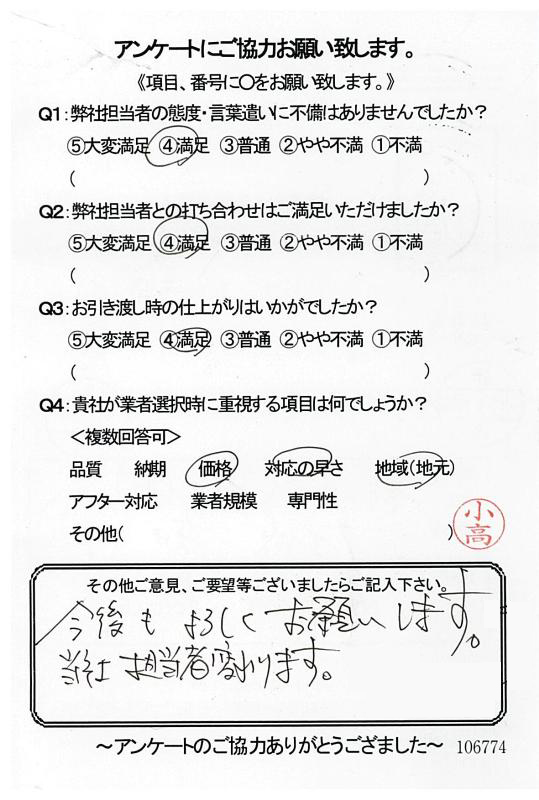 アンケートにご協力お願い致します。
《項目、番号に○をお願い致します。》
Q1:弊社担当者の態度・言葉遣いに不備はありませんでしたか?
⑤大変満足 ④満足 ③普通 ②やや不満 ①不満
( )
Q2:弊社担当者との打ち合わせはご満足いただけましたか?
⑤大変満足 ④満足 ③普通 ②やや不満 ①不満
( )
Q3:お引き渡し時の仕上がりはいかがでしたか?
⑤大変満足 ④満足 ③普通 ②やや不満 ①不満
( )
Q4:貴社が業者選択時に重視する項目は何でしょうか?
<複数回答可>
品質 納期 価格 対応の早さ 地域(地元)
アフター対応 業者規模 専門性
その他( )
小高
その他ご意見、ご要望等ございましたらご記入下さい。
今後もよろしくお願いします。
当社担当者変わります。
~アンケートのご協力ありがとうござました~ 106774